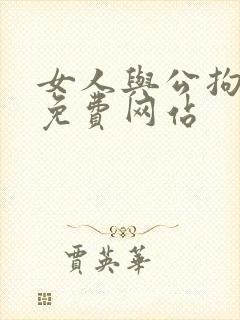 女人與公拘
免費网佔
賈英華